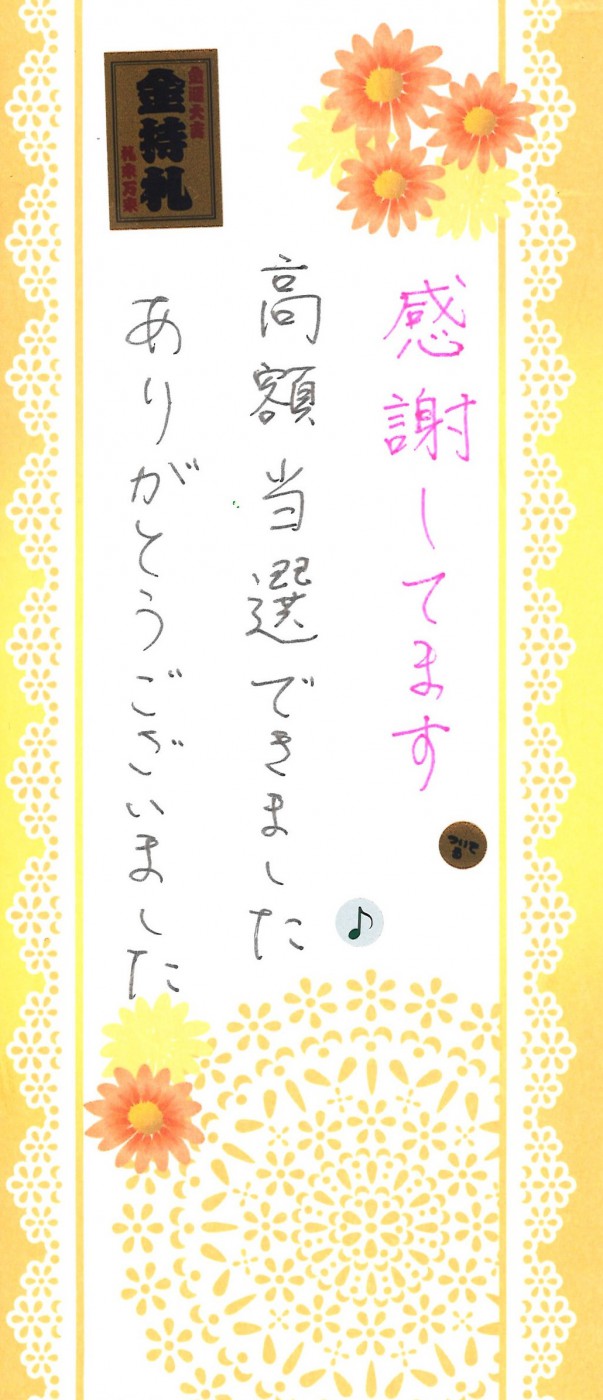 感謝してます
ついてる
高額当選できました
ありがとうございました
金持札
札束万来